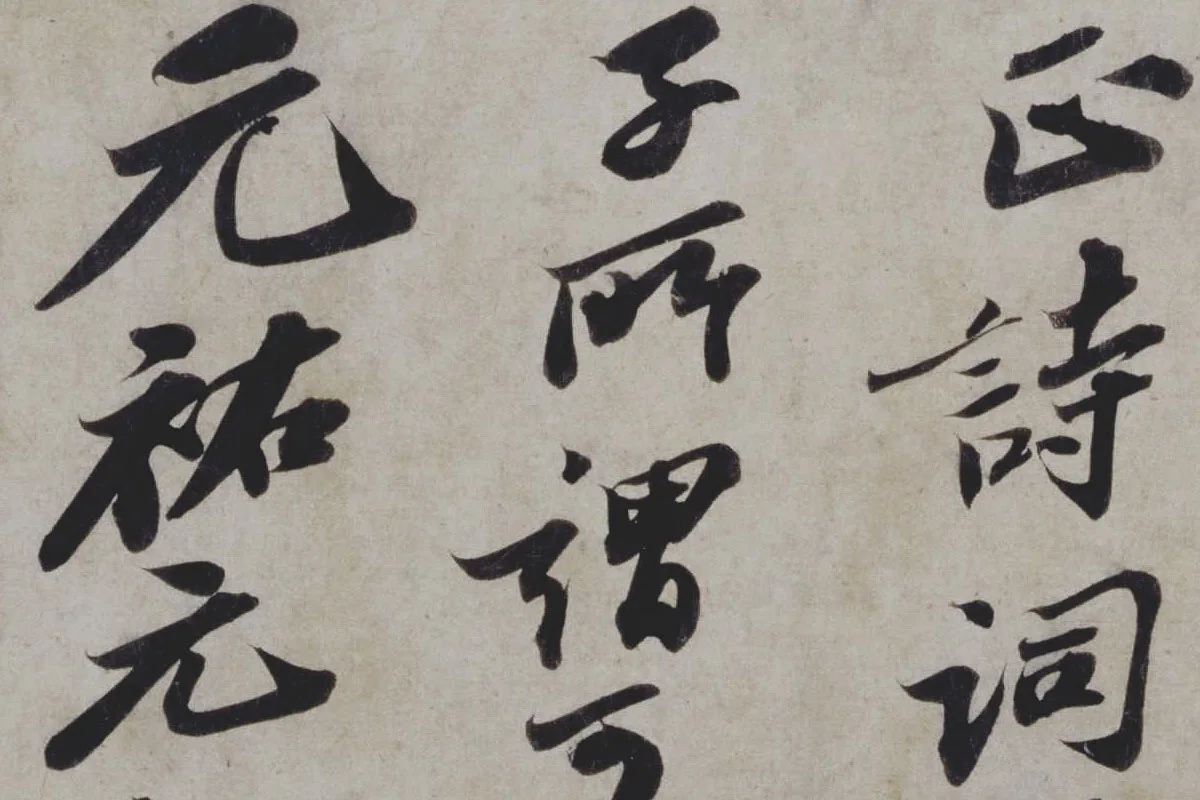 正詩詞
子所謂可
元祐元